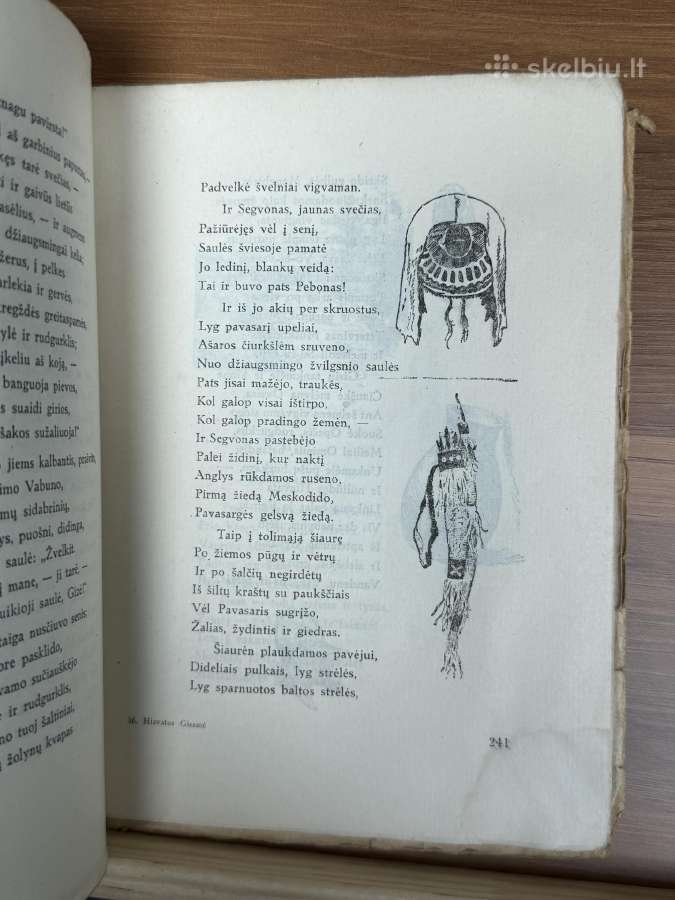 skelbiu.lt
nagu pavirsta!"
aš garbinius
tarė svečias, —
ir gaivūs lietūs
— ir augmens
džiaugsmingai kelia
žerus, į pelkes
ir gervės,
greitasparnės,
ir rudgurklis;
įkeliu aš koją, —
banguoja pievos,
suaidi girios,
šakos sužaliuoja!"
jiems kalbantis,
Vabuno,
sidabrinių,
puošni, didinga,
saulė: „Žvelkit
į mane, — ji tarė —
saulė, Gize!"
nusčiuvo senis;
pasklido,
sučiauškėjo
ir rudgurklis,
tuoj šaltiniai,
žolynų kvapas
Padvelkė švelniai vigvaman.
Ir Segvonas, jaunas svečias,
Pažiūrėjęs vėl į senį,
Saulės šviesoje pamatė
Jo ledinį, blankų veidą:
Tai ir buvo pats Pebonas!
Ir iš jo akių per skruostus,
Lyg pavasarį upeliai,
Ašaros čiurkšlėm sruveno,
Nuo džiaugsmingo žvilgsnio saulės
Pats jisai mažėjo, traukės,
Kol galop visai ištirpo,
Kol galop pradingo žemėn, —
Ir Segvonas pastebėjo
Palei židinį, kur naktį
Anglys rūkdamos ruseno,
Pirmą žiedą Meskodido,
Pavasargės gelsvą žiedą.
Taip į tolimąją šiaurę
Po žiemos pūgų ir vėtrų
Ir po šalčių negirdėtų
Iš šiltų kraštų su paukščiais
Vėl Pavasaris sugrįžo,
Žalias, žydintis ir giedras.
Šiaurėn plaukdamos pavėjui,
Dideliais pulkais, lyg strėlės,
Lyg sparnuotos baltos strėlės,
16. Hiavatos Giesmė
241